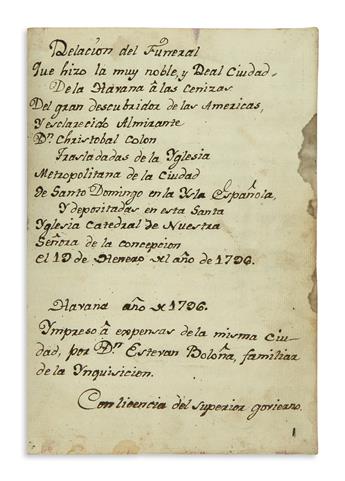 Relacion del Funeral
Que hizo la muy noble, y Real Ciudad
De la Havana à las Cenizas
Del gran descubridor de las Americas,
Y esclarecido Almirante
Dn. Christobal Colon
Trasladadas de la Yglesia
Metropolitana de la Ciudad
de Santo Domingo en la Ysla Española,
Y depositadas en esta Santa
Yglesia Catedral de Nuestra
Señora de la Concepcion
el 19 de Henero del año de 1796.
Havana año de 1796.
Ympreso à expensas de la misma Ciu-
dad, por Dn. Estevan Boloña, familiar
de la Ynquisicion.
Con licencia del superior govierno.
1